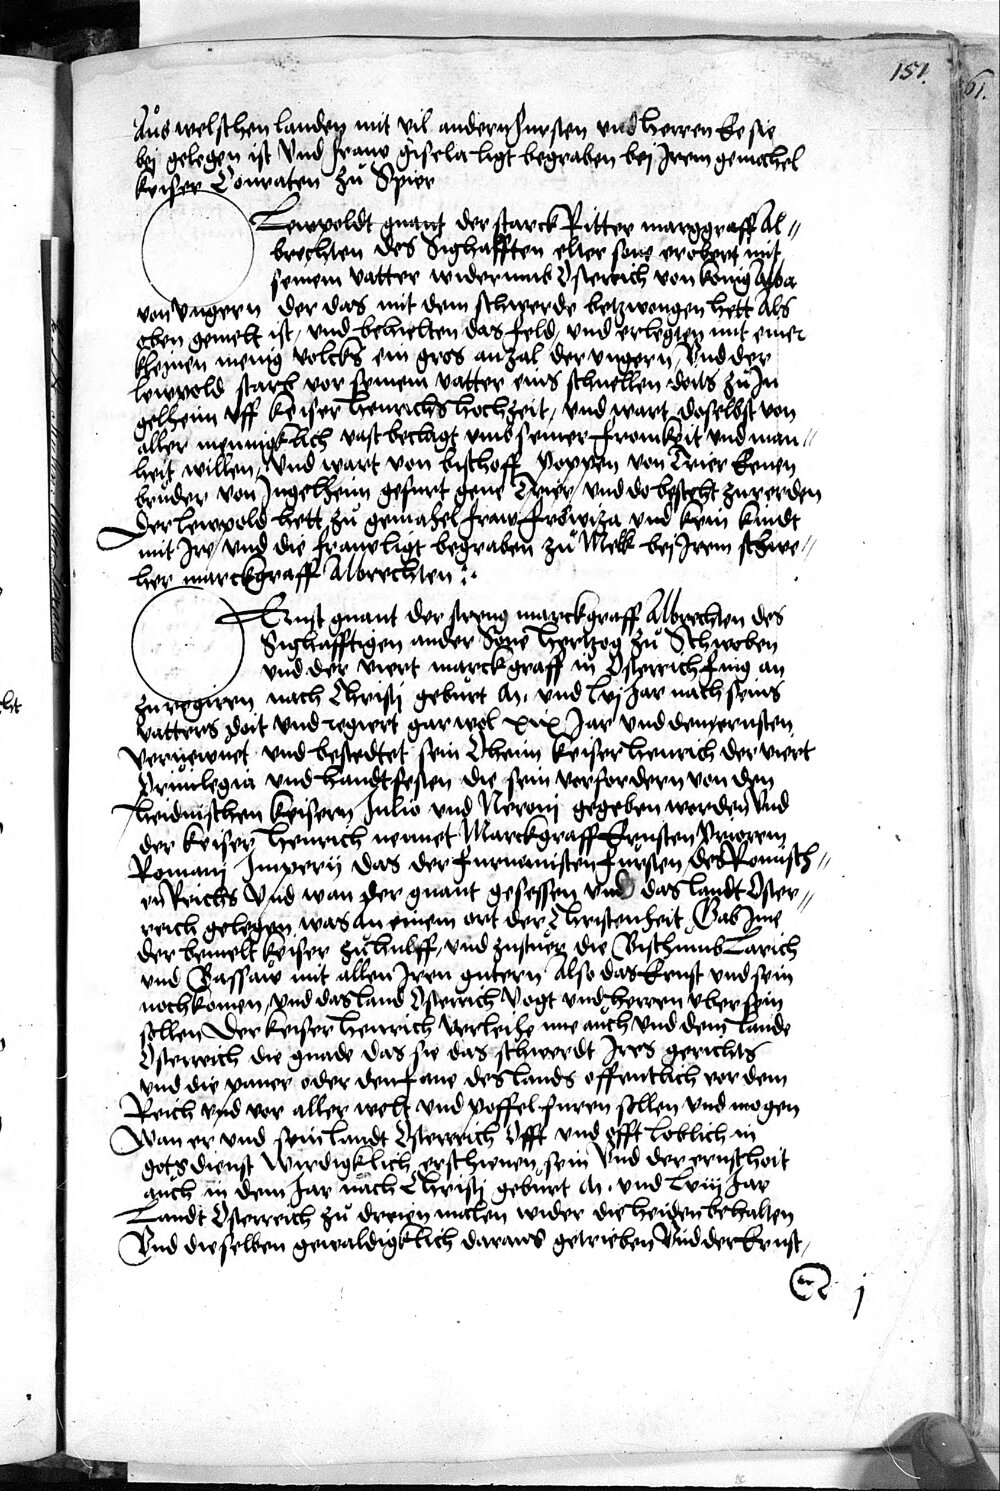 151.
Aůs welschen landen mit vil andern fursten vnd herren Ee sie
bej gelegen ist Vnd frauw gisela ligt begraben bej Irem gemahel
keiser Conraten zů Spier
Lewpoldt gnant der starck Ritter marggraff Al//
brechten des Sighafften elter sone erobert mit
seinem vatter widerumb Osterich von konig Aba
von Vngern der das mit dem schwerde betzwongen hett Als
oben gemelt ist, vnd behielten das feld, vnd erlegten mit einer
kleinen menig volcks ein gros anzal der vngern Vnd der
lewpold starb vor seinem vatter eins schnellen doits zů In
gelheim vff keiser Henrichs hochzeit, vnd wart doselbst von
aller menngklich vast beclagt vmb seiner fromkeit vnd man//
heit willen, Vnd wart von bischoff poppen von Trier
brůder von Ingelheim gefurt gene Trier, vnd do besteht zur erden
Der lewpold hett zů gemahel fraw vnd kein kindt
mit Ire, vnd die frauw ligt begraben zů Melk bej Irem schwe//
her marckgraff Albrechten :.
Ernst gnant der streng marckgraff Albrechten des
Sighafftigen ander Sone hertzog zů Schwoben
vnd der viert marckgraff in Osterrich fing an
zu regirn nach Christj gebůrt M. vnd lvj Jar nach seins
vatters doit vnd regiert gar wol xix Jar vnd dem ernsten
vernewnet vnd bestedtet sein Oheim keiser henrich der viert
Priuilegia vnd handtfesten die sein verfordern von den
heidnischen keisern Julio vnd Neronj gegeben werden Vnd
der keiser Henrich nennet Marckgraff Ernsten Priorem
Romanj Imperij das der furnemsten fursten des Romisch//
en Reichs Vnd wan der gnant gesessen vnd das landt Oster//
reich gelegen was An einem ort der Christenheit Gab Ime
der bemelt keiser zů hulff, vnd zustuer die Bisthumb Larich
vnd Bassaw mit allen Iren gutern Also das Ernst vnd sein
nochkomen, vnd das land Osterrich Vogt vnd herren vber sein
sollen Der keiser Henrich verleihe ime aůch vnd dem lande
Osterreich die gnade das sie das schwerdt Ires gerichts
vnd die paner oder den fane des lands offentlich vor dem
Reich vnd vor aller welt vnd furen sollen vnd mogen
Wan er vnd sein landt Osterreich Offt vnd offt loblich in
gots dienst Wirdigklich erschienen sein Vnd der ernst hoit
aůch in dem Jar nach Christj gebůrt M. vnd lviij Jar
Landt Osterreich zů dreien malen wider die heiden behalten
Vnd dieselben gewaldigklich daraus getrieben Vnd der Ernst,
j